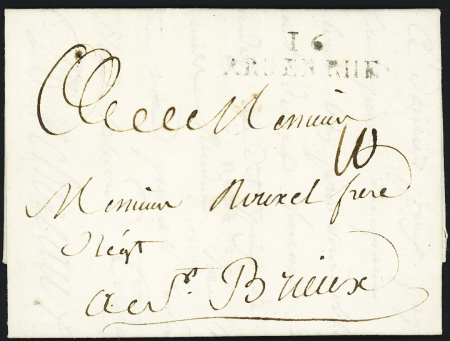 16
ARS EN RHE
Monsieur
10
Monsieur Rouxel frere
Négt
a St. Brieux